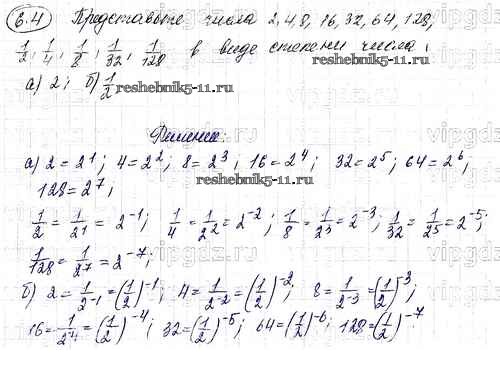 6.4 Представьте числа 2, 4, 8, 16, 32, 64, 128,
1/2, 1/4, 1/8, 1/32, 1/128 в виде степени числа:
reshebnik5-11.ru
а) 2; б) 1/2
reshebnik5-11.ru
Решение:
а) 2 = 2¹; 4 = 2²; 8 = 2³; 16 = 2⁴; 32 = 2⁵; 64 = 2⁶,
reshebnik5-11.ru
128 = 2⁷;
1/2 = 1/2¹ = 2⁻¹; 1/4 = 1/2² = 2⁻²; 1/8 = 1/2³ = 2⁻³; 1/32 = 1/2⁵ = 2⁻⁵;
1/128 = 1/2⁷ = 2⁻⁷;
б) 2 = 1/2⁻¹ = (1/2)⁻¹; 4 = 1/2⁻² = (1/2)⁻²; 8 = 1/2⁻³ = (1/2)⁻³
16 = 1/2⁻⁴ = (1/2)⁻⁴; 32 = (1/2)⁻⁵; 64 = (1/2)⁻⁶; 128 = (1/2)⁻⁷